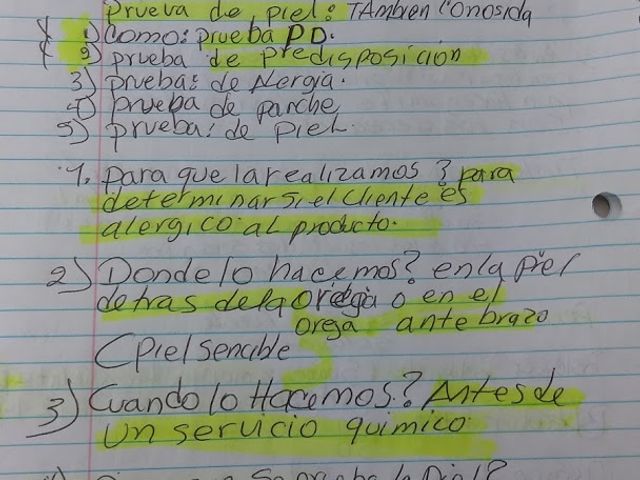 Prueva de piel: TAmbien Conosida
1) Como: prueba P.D.
2) prueba de predisposición
3) pruebas de Alergia.
4) prueba de parche
5) prueba: de piel
1. para que la realizamos? para
determinar si el cliente es
alergico al producto.
2) Donde lo hacemos? en la piel
detras de la Oreja o en el
orega antebrazo
(piel sencible
3) Cuando lo Hacemos? Antes de
un servicio quimico